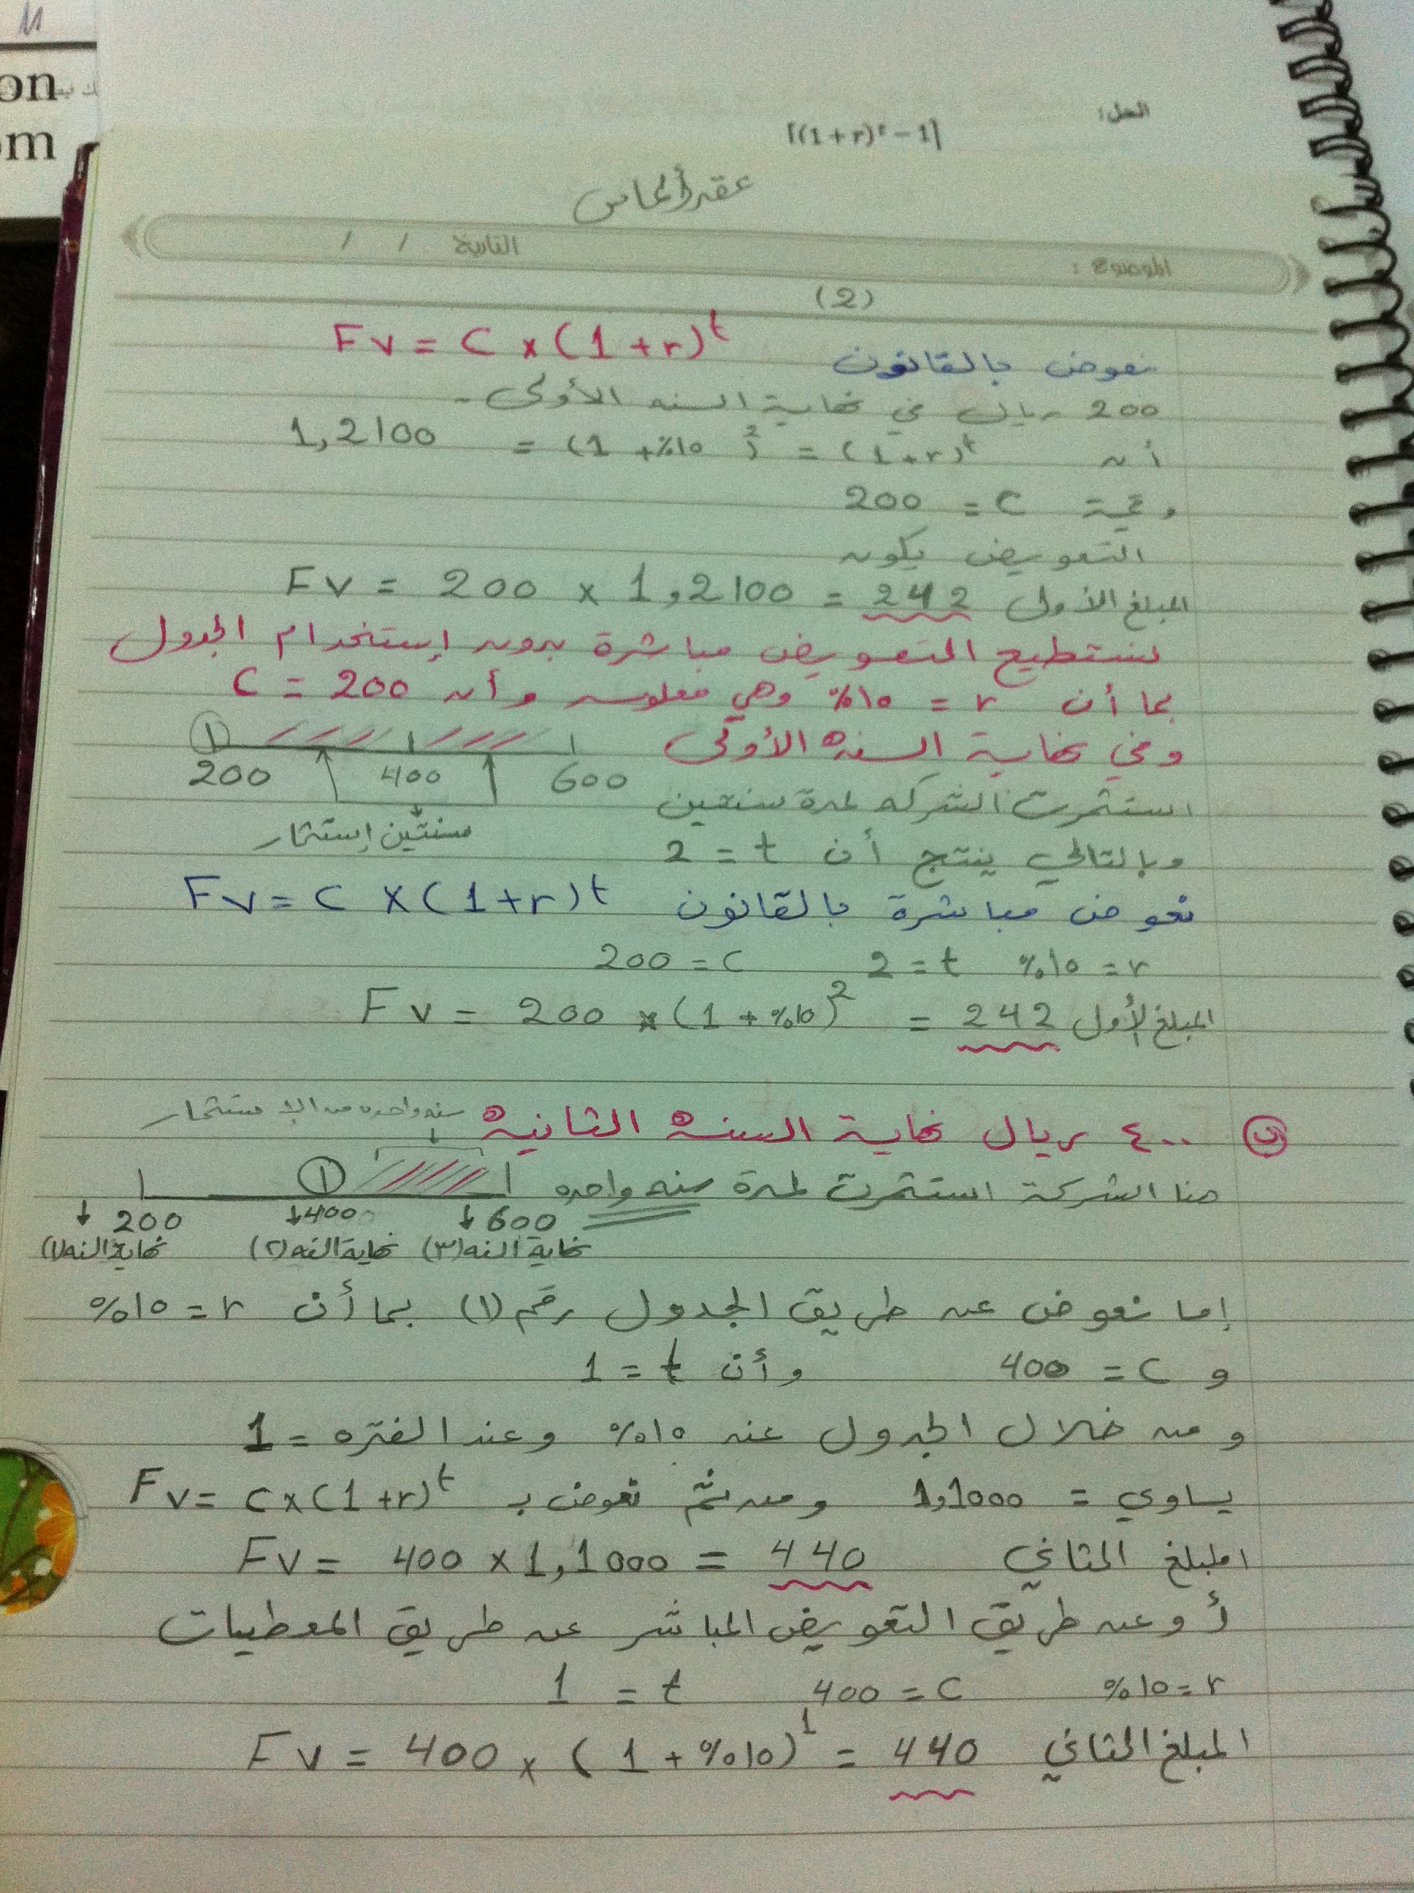 on
om
الحل:
[(1+r)ᵗ-1]
عقد ألماس
الموضوع : التاريخ / /
(2)
نعوض بالقانون Fv = C × (1+r)^t
200 ريال في نهاية السنه الأولى -
أن (1+r)^t = (1+%10)^2 = 1,2100
وقيمة C = 200
التعويض يكون
المبلغ الأول Fv = 200 × 1,2100 = 242
نستطيع التعويض مباشرة بدون إستخدام الجدول
بما أن r = %10 وهي معلومه وأن C = 200
وفي نهاية السنه الأولى
① 200 400 600
استثمرت الشركه لمدة سنتين
سنتين إستثمار
وبالتالي ينتج أن t = 2
نعوض مباشرة بالقانون Fv = C × (1+r)^t
r = %10 t = 2 C = 200
المبلغ الأول Fv = 200 × (1+%10)^2 = 242
سنه واحده من الإستثمار
٤٠٠ ريال نهاية السنه الثانيه
هنا الشركة استثمرت لمدة سنه واحده
① 200 400 600
نهاية السنه(١) نهاية السنه(٢) نهاية السنه(٣)
إما نعوض عن طريق الجدول رقم (١) بما أن r = %10
و C = 400 وأن t = 1
ومن خلال الجدول عند %10 وعند الفتره = 1
يساوي = 1,1000 ومن ثم نعوض بـ Fv = C×(1+r)^t
المبلغ الثاني Fv = 400 × 1,1000 = 440
أو عن طريق التعويض المباشر عن طريق المعطيات
r = %10 C = 400 t = 1
المبلغ الثاني Fv = 400 × (1+%10)^1 = 440